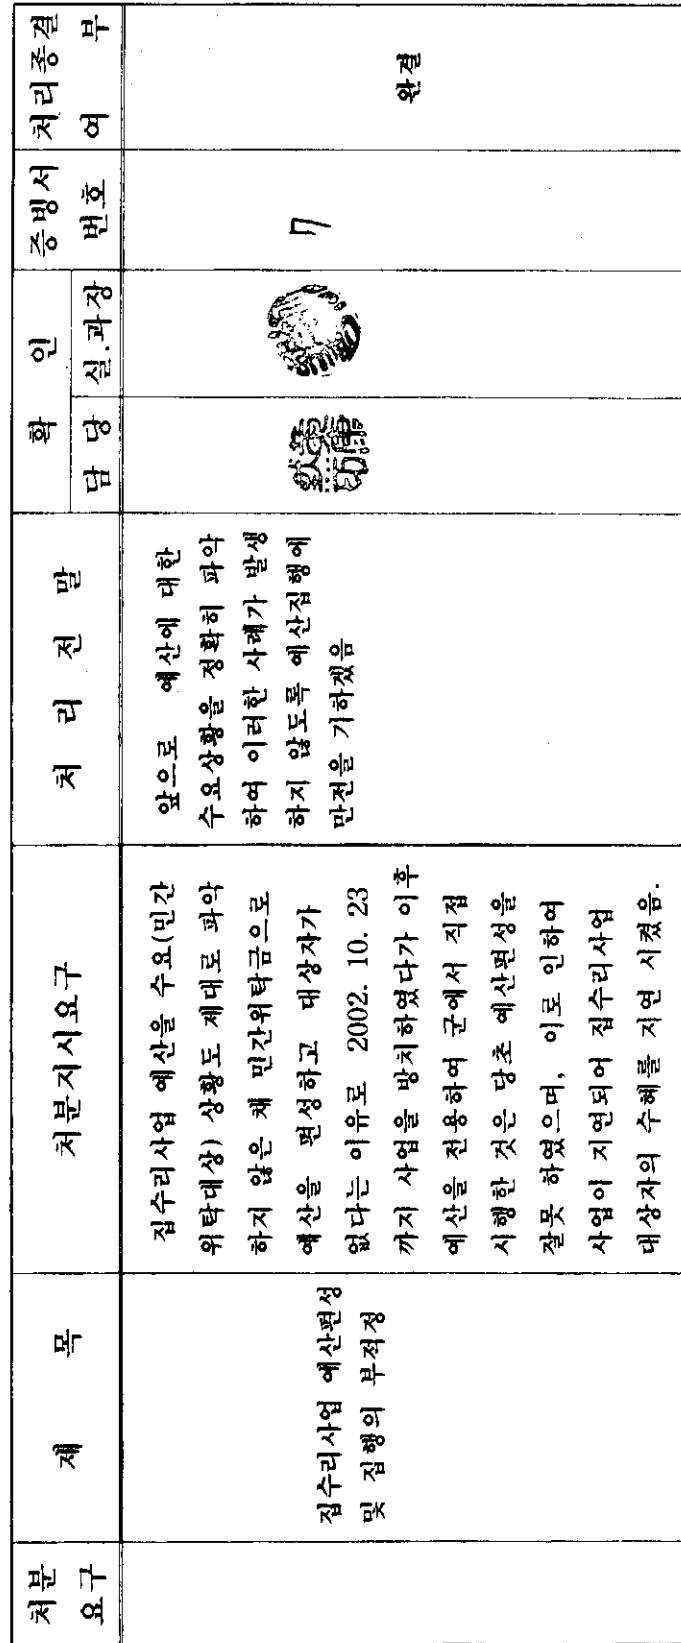 처분
요구
제 목
처분지시요구
처 리 전 말
확 인
담 당
실.과장
증빙서
번호
처리종결
여 부
집수리사업 예산편성
및 집행의 부적정
집수리사업 예산을 수요(민간
위탁대상) 상황도 제대로 파악
하지 않은 채 민간위탁금으로
예산을 편성하고 대상자가
없다는 이유로 2002. 10. 23
까지 사업을 방치하였다가 이후
예산을 전용하여 군에서 직접
시행한 것은 당초 예산편성을
잘못 하였으며, 이로 인하여
사업이 지연되어 집수리사업
대상자의 수혜를 지연 시켰음.
앞으로 예산에 대한
수요상황을 정확히 파악
하여 이러한 사례가 발생
하지 않도록 예산집행에
만전을 기하겠음
7
완결